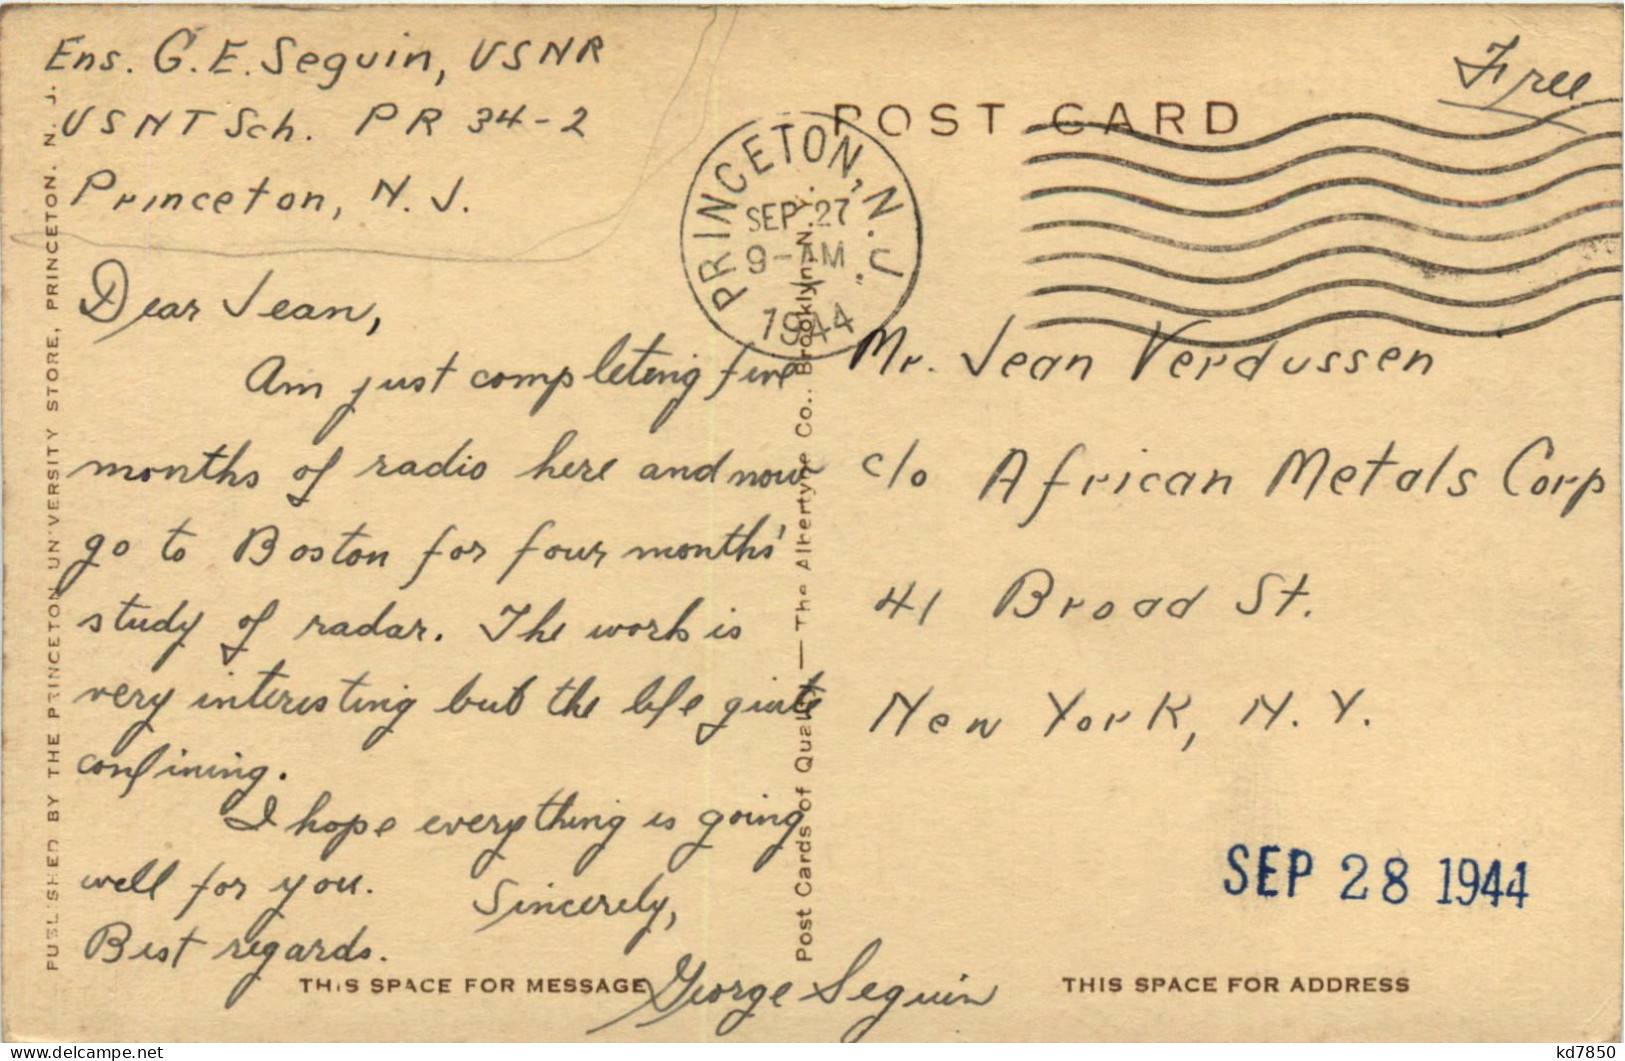 Ens. G. E. Seguin, USNR
USNT Sch. PR 34-2
Princeton, N. J.
Dear Jean,
Am just completing five
months of radio here and now
go to Boston for four months'
study of radar. The work is
very interesting but the life quite
confining.
I hope everything is going
well for you.
Sincerely,
Best regards.
George Seguin
THIS SPACE FOR MESSAGE
PUBLISHED BY THE PRINCETON UNIVERSITY STORE, PRINCETON, N. J.
Post Cards of Quality — The Albertype Co., Brooklyn, N. Y.
POST CARD
Free
PRINCETON, N.J.
SEP 27
9-AM
1944
Mr. Jean Verdussen
c/o African Metals Corp
41 Broad St.
New York, N. Y.
SEP 28 1944
THIS SPACE FOR ADDRESS
delcampe.net
kd7850